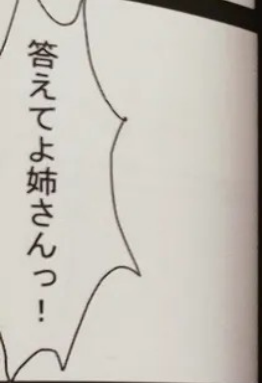 答えてよ姉さんっ!